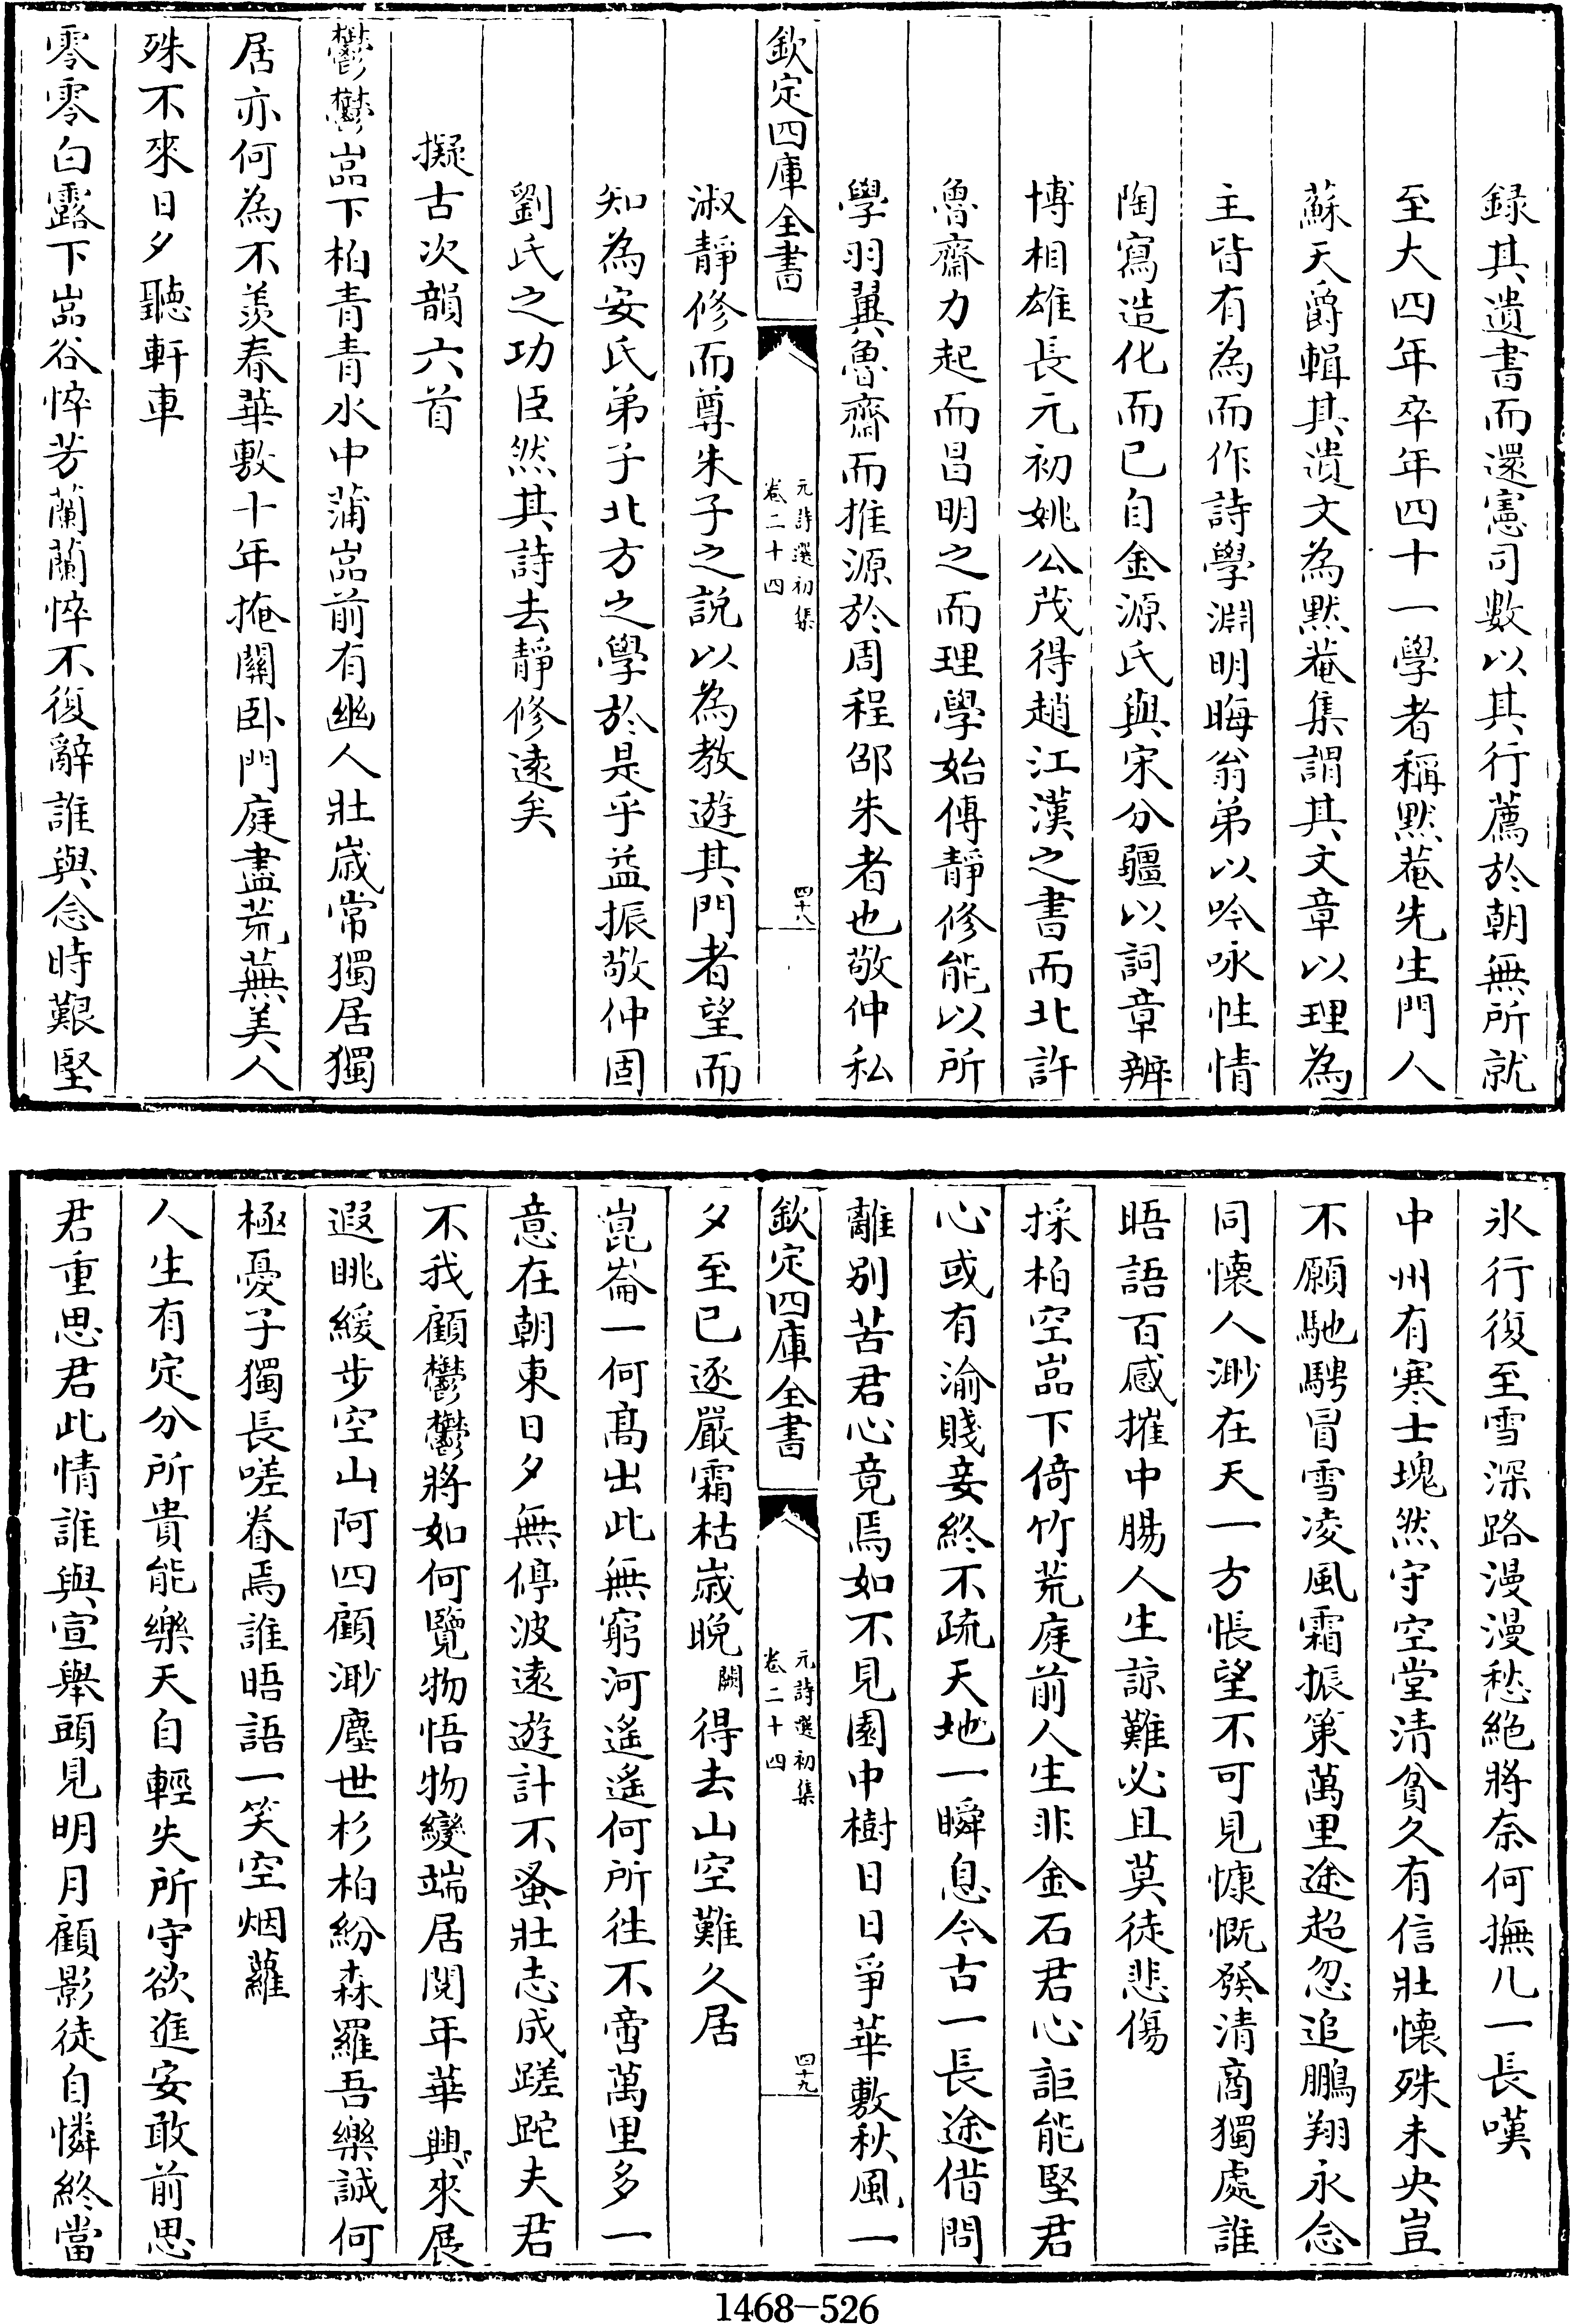 録其遺書而還憲司數以其行薦於朝無所就
至大四年卒年四十一學者稱默菴先生門人
蘇天爵輯其遺文為默菴集謂其文章以理為
主皆有為而作詩學淵明晦翁弟以吟咏性情
陶寫造化而已自金源氏與宋分疆以詞章辨
博相雄長元初姚公茂得趙江漢之書而北許
魯齋力起而昌明之而理學始傳靜修能以所
學羽翼魯齋而推源於周程邵朱者也敬仲私
欽定四庫全書
元詩選初集
卷二十四
四十八
淑靜修而尊朱子之說以為教遊其門者望而
知為安氏弟子北方之學於是乎益振敬仲固
劉氏之功臣然其詩去靜修遠矣
擬古次韻六首
鬱鬱嵓下柏青青水中蒲嵓前有幽人壯嵗常獨居獨
居亦何為不羨春華敷十年掩關卧門庭盡荒蕪美人
殊不來日夕聽軒車
零零白露下嵓谷悴芳蘭蘭悴不復辭誰與念時艱堅
氷行復至雪深路漫漫愁絕將奈何撫几一長嘆
中州有寒士塊然守空堂清貧久有信壯懐殊未央豈
不願馳騁冒雪凌風霜振策萬里途超忽追鵬翔永念
同懐人渺在天一方悵望不可見慷慨發清商獨處誰
晤語百感摧中腸人生諒難必且莫徒悲傷
採柏空嵓下倚竹荒庭前人生非金石君心詎能堅君
心或有渝賤妾終不疏天地一瞬息今古一長途借問
離別苦君心竟焉如不見園中樹日日爭華敷秋風一
欽定四庫全書
元詩選初集
卷二十四
四十九
夕至已逐嚴霜枯嵗晚闕得去山空難久居
崑崙一何髙出此無窮河遙遙何所往不啻萬里多一
意在朝東日夕無停波遠遊計不蚤壯志成蹉跎夫君
不我顧鬱鬱將如何覽物悟物變端居閱年華興來展
遐眺緩步空山阿四顧渺塵世杉柏紛森羅吾樂誠何
極憂子獨長嗟眷焉誰晤語一笑空烟蘿
人生有定分所貴能樂天自輕失所守欲進安敢前思
君重思君此情誰與宣舉頭見明月顧影徒自憐終當
1468-526